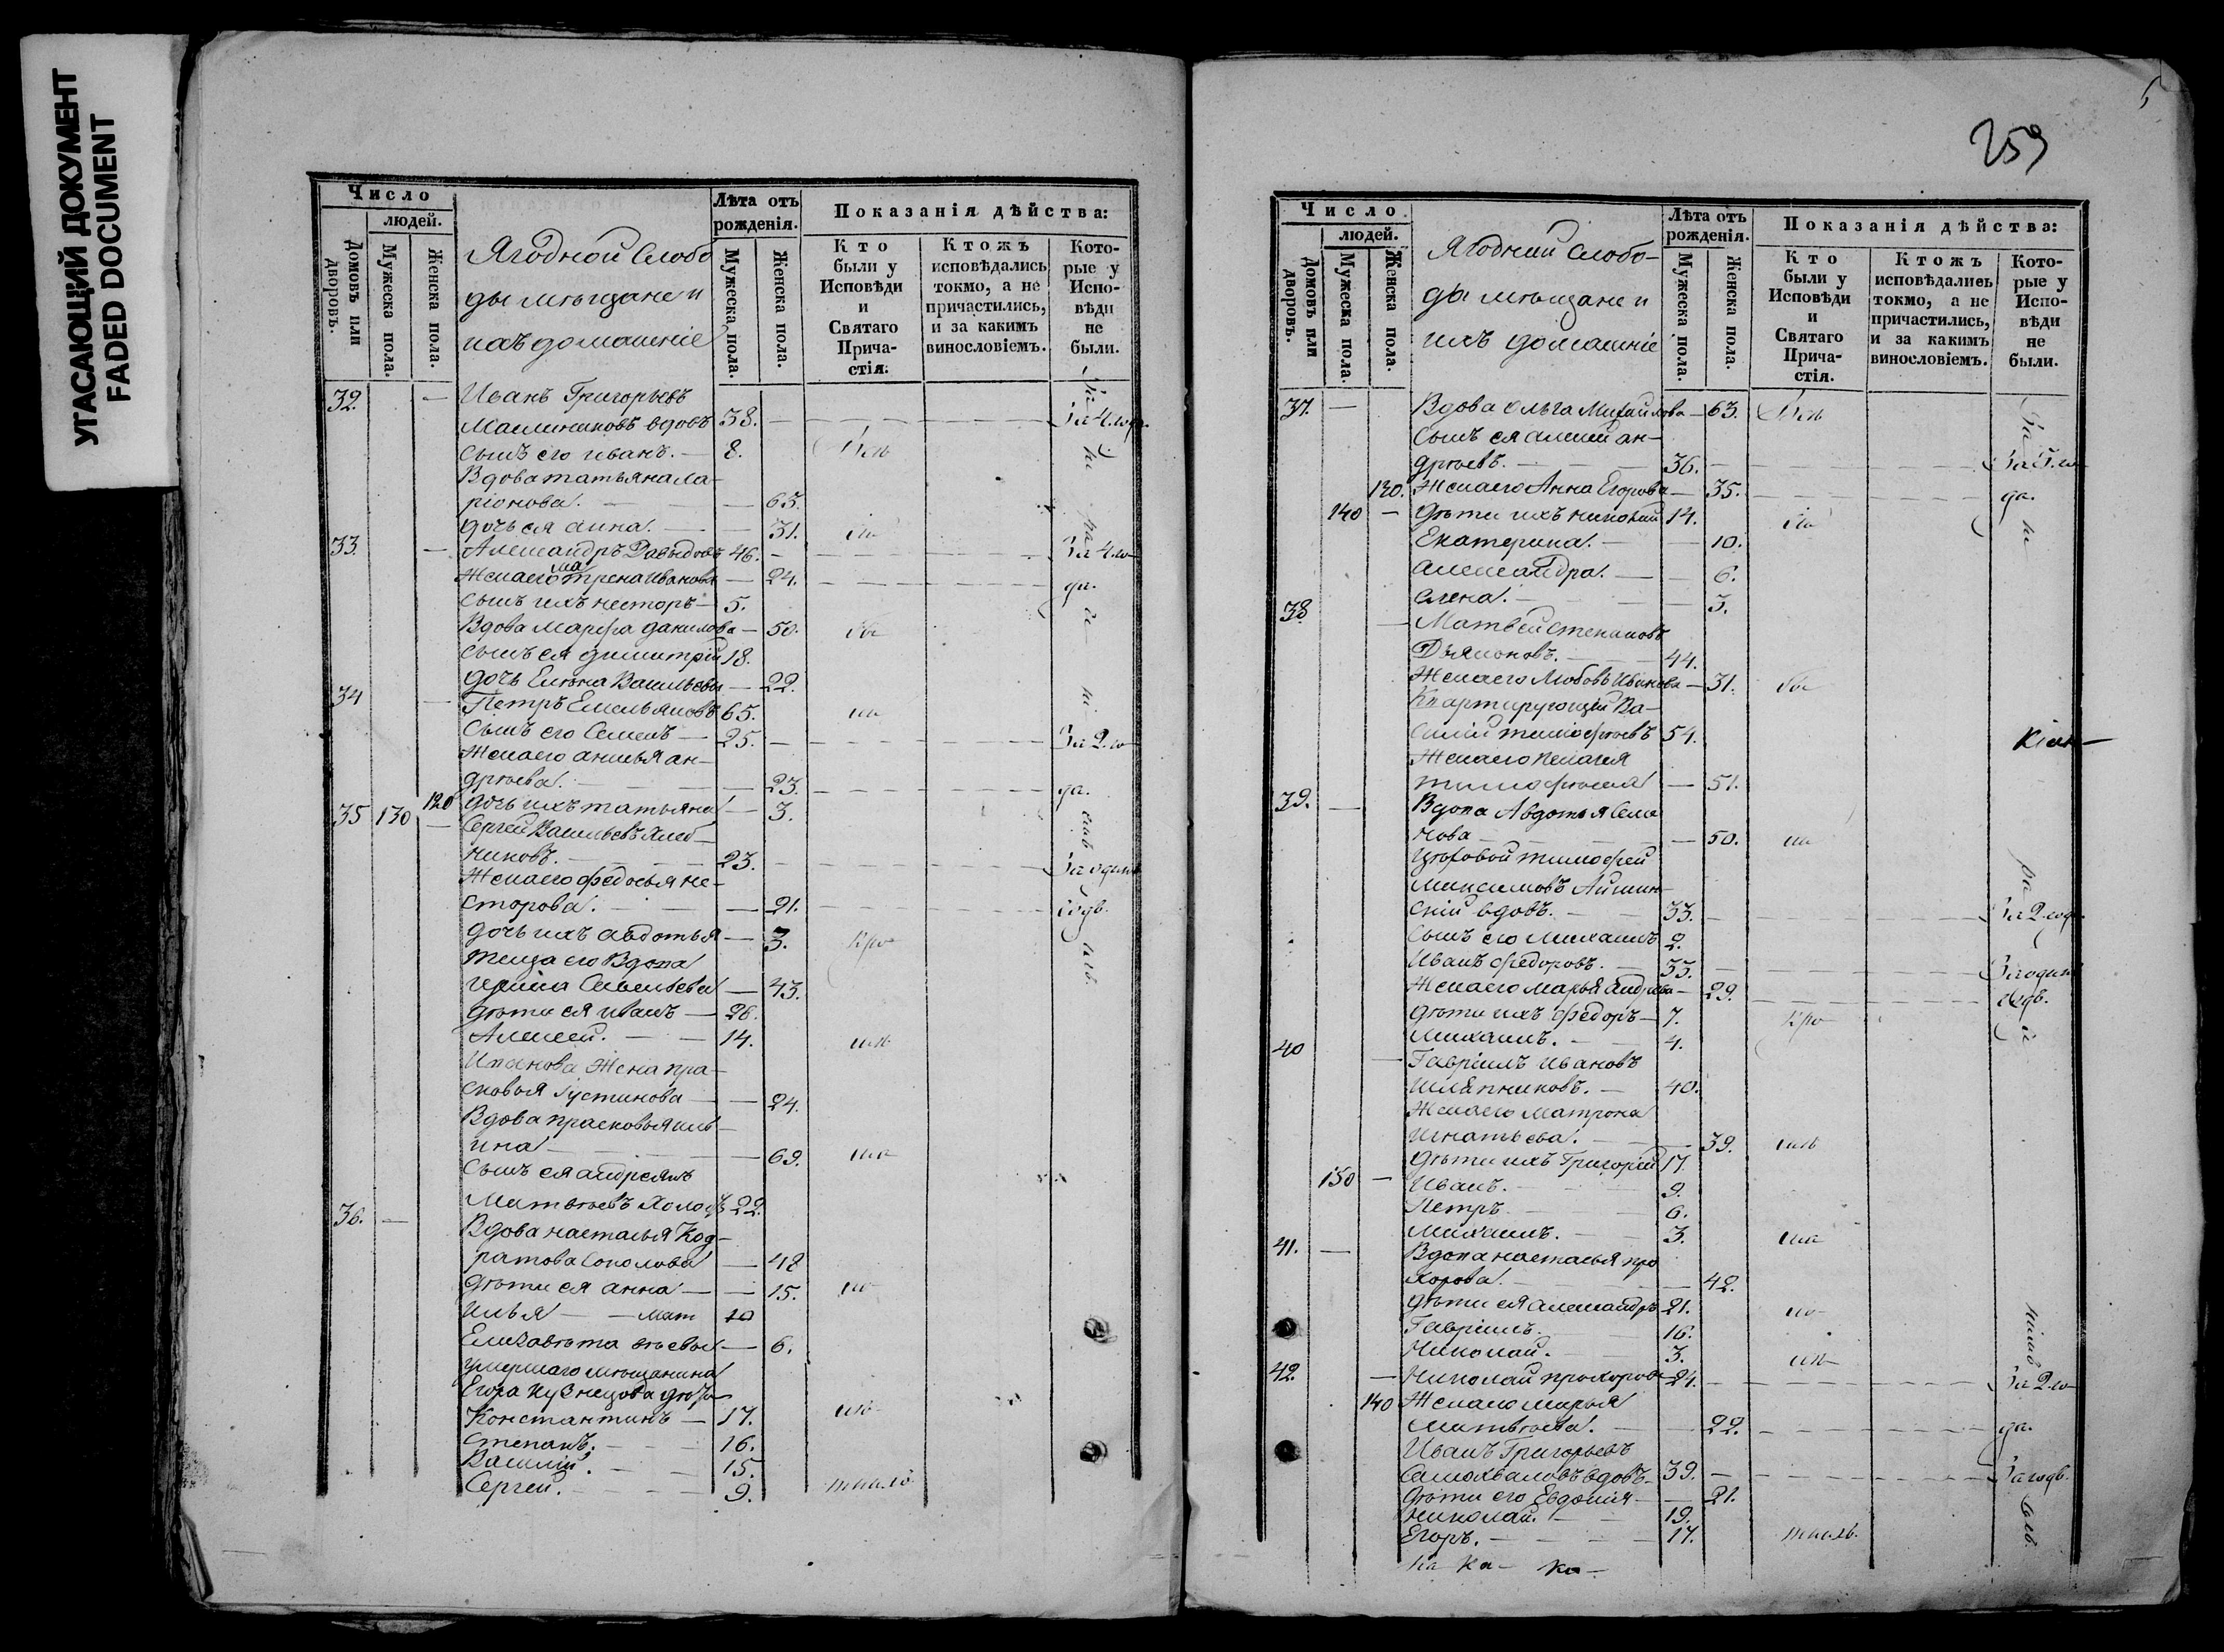 УГАСАЮЩИЙ ДОКУМЕНТ
FADED DOCUMENT
Число
людей.
Домовъ или дворовъ.
Мужеска пола.
Женска пола.
Ягодной Слобо
ды мѣщане и
ихъ домашніе
Лѣта отъ
рожденія.
Мужеска пола.
Женска пола.
Показанія дѣйства:
Кто
были у
Исповѣди
и
Святаго
Прича-
стія.
Ктожъ
исповѣдались
токмо, а не
причастились,
и за какимъ
винословіемъ.
Кото-
рые у
Испо-
вѣди
не
были.
32. — Иванъ Григорьевъ
Масленниковъ вдовъ 38. — За 4. года.
Сынъ его Иванъ. — 8.
Вдова татьяна ла-
ріонова. — 63.
дочь ея анна. — 31.
33. — Александръ Давыдовъ 46. — За 4. го-
Жена его матрена Иванова — 24. — да.
Сынъ ихъ несторъ — 5.
Вдова Марфа данилова — 50.
сынъ ея димитрій 18.
дочь Елена Васильева — 22.
34 — Петръ Емельяновъ 65.
Сынъ его Семенъ — 25. — За 2. го-
Жена его анисья ан-
дреева. — 23. — да.
120 дочь ихъ татьяна — 3.
35 130 — Сергей Васильевъ Хлеб-
никовъ. — 23. — За одинъ
Жена его федосья не-
сторова. — 21. — годъ.
дочь ихъ авдотья — 3.
теща его Вдова
ирина Савельева — 43.
дѣти ея иванъ — 28.
Алексей. — 14.
Иванова Жена пра-
сковья Густинова — 24.
Вдова прасковья иль-
ина — 69.
Сынъ ея андреянъ
Матвѣевъ 22.
36. — Вдова настасья Код-
ратова Соколова — 48
дѣти ея анна — 15.
илья — мат 10
Елизавѣта вѣевы — 6.
умершаго мѣщанина
Егора Кузнецова дѣти
Константинъ — 17.
степанъ. — 16.
Василий. — 15.
Сергей. — 9.
259
Число
людей.
Домовъ или дворовъ.
Мужеска пола.
Женска пола.
Ягодный Слобо-
ды мѣщане и
ихъ домашніе
Лѣта отъ
рожденія.
Мужеска пола.
Женска пола.
Показанія дѣйства:
Кто
были у
Исповѣди
и
Святаго
Прича-
стія.
Ктожъ
исповѣдались
токмо, а не
причастились,
и за какимъ
винословіемъ.
Кото-
рые у
Испо-
вѣди
не
были.
37. — Вдова Ольга Михайлова — 63.
Сынъ ея алексей ан-
дреевъ. — 36. — За 5. го-
130. Жена его Анна Егорова — 35. — да.
140 — дѣти ихъ николай 14.
Екатерина. — 10.
александра. — 6.
елена. — 3.
38 — Матвей степановъ
Дьяконовъ. — 44.
Жена его Любовь Иванова — 31.
Квартирующій Ва-
силій тимофеевъ 54.
Жена его пелагея
тимофеева — 51.
39. — Вдова Авдотья Семе
нова — 50.
Цеховой тимофей
максимовъ
скій вдовъ. — 33. — За 2. года.
Сынъ его Михаилъ 2.
Иванъ федоровъ. — 33. — За одинъ
Жена его марья андреева — 29. — годъ.
дѣти ихъ федоръ — 7.
Михаилъ. — 4.
40 — Гавріилъ ивановъ
шляпниковъ. — 40.
Жена его Матрона
игнатьева. — 39.
дѣти ихъ Григорій 17.
150 — Иванъ. — 9.
Петръ. — 6.
Михаилъ. — 3.
41. — Вдова настасья про
хорова. — 42.
дѣти ея александръ 21.
Гавріилъ. — 16.
Николай. — 3.
42. — Николай прохоровъ 24. — За 2. го-
140 Жена его марья
матвѣева. — 22. — да.
Иванъ Григорьевъ
Самохваловъ вдовъ — 39. — За годъ.
дѣти его Евдокия — 21.
николай. — 19.
Егоръ. — 17.